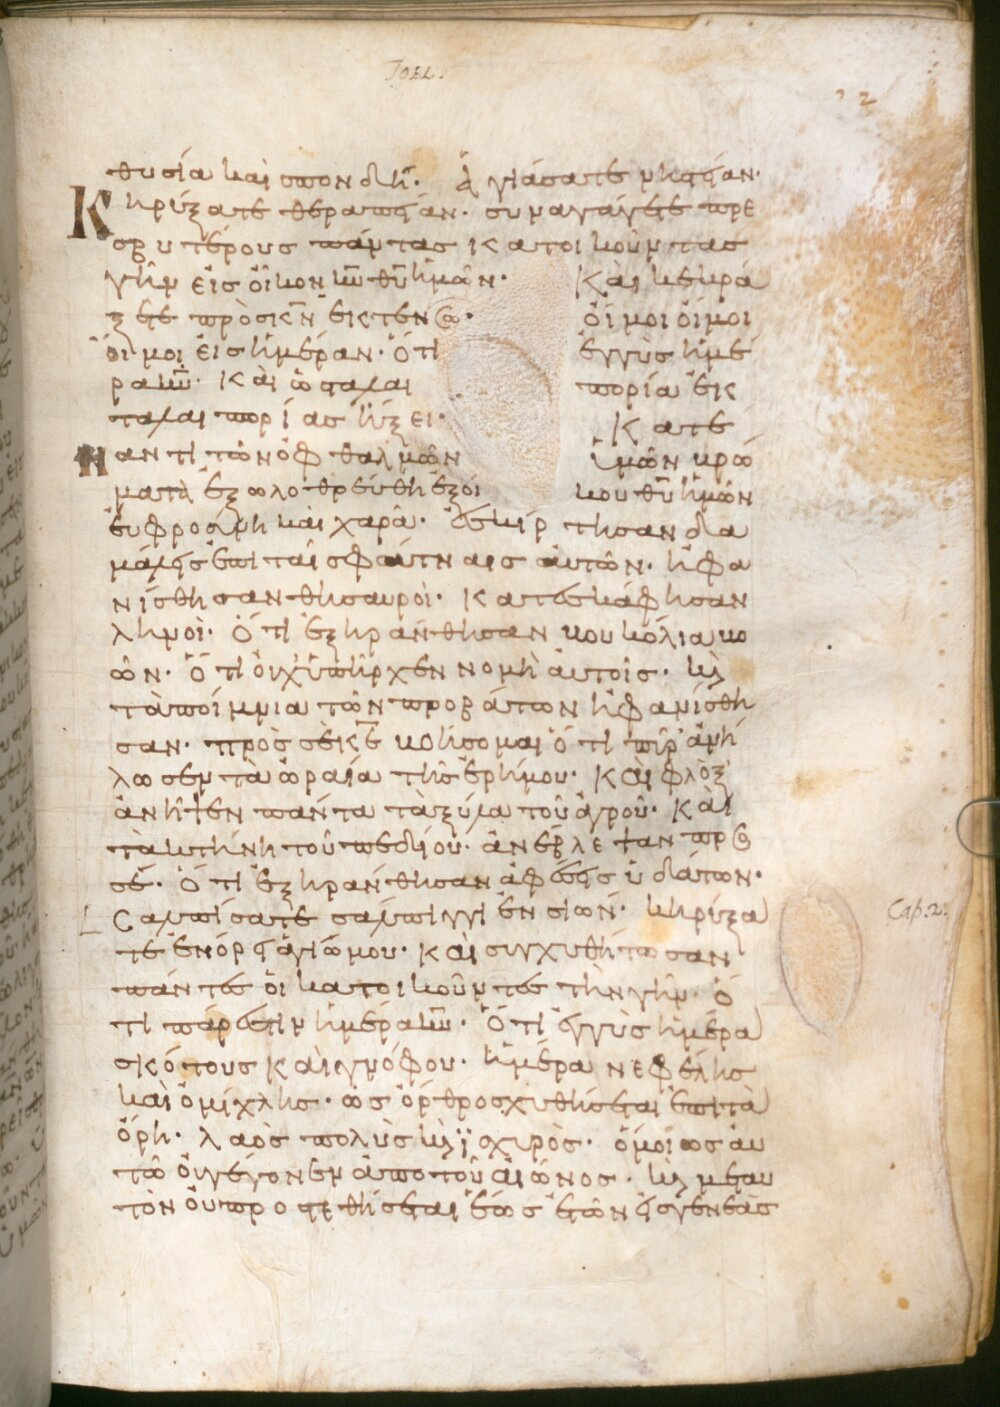 JOEL.
22
θυσία και σπονδή· ἁγιάσατε νηστείαν·
Κηρύξατε θεραπείαν· συναγάγετε πρε
σβυτέρους πάντας κατοικοῦντας
γῆν εἰς οἶκον κ̅υ̅ θ̅υ̅ ἡμῶν· Καὶ κεκρά
ξετε πρὸς κ̅ν̅ ἐκτενῶ· οἴμοι οἴμοι
οἴμοι εἰς ἡμέραν· Ὅτι ἐγγὺς ἡμέ
ρα κ̅υ̅· Καὶ ὡς ταλαι πορία ἐκ
ταλαιπορίας ἥξει· Κατέ
ναντι τῶν ὀφθαλμῶν ὑμῶν βρώ
ματα ἐξωλοθρεύθη ἐξ οἴ κου θ̅υ̅ ἡμῶν
ἐυφροσύνη καὶ χαρά· Ἐσκίρ τησαν δα
μάλεις ἐπὶ ταῖς φάτναις αὐτῶν· ἠφα
νίσθησαν θησαυροί· Κατεσκάφησαν
λημοὶ· Ὅτι ἐξηράνθησαν βουκόλια βο
ῶν· Ὅτι οὐχ ὑπῆρχεν νομὴ αὐτοῖς· κ̀
τὰ ποίμνια τῶν προβάτων ἠφανίσθη
σαν· πρὸς σὲ κ̅ε̅ βοήσομαι ὅτι πῦρ ἀνή
λωσεν τὰ ὡραία τῆς ἐρήμου· Καὶ φλὸξ
ἀνῆψεν πάντα τὰ ξύλα τοῦ ἀγροῦ· Καὶ
τὰ κτήνη τοῦ πεδίου· ἀνέβλεψαν πρὸς
σέ· Ὅτι ἐξηράνθησαν ἀφέσεις ὑδάτων·
Σαλπίσατε σάλπιγγι ἐν σιών· κηρύξα
τε ἐν όρει ἁγίω μου· Καὶ συγχυθήτωσαν
πάντες οἱ κατοικοῦντες τὴν γῆν· Ὅ
τι πάρεστιν ἡμέρα κ̅υ̅· Ὅτι ἐγγὺς ἡμέρα
σκότους καὶ γνόφου· ἡμέρα νεφέλης
καὶ ὁμίχλης· ὡς ὄρθρος χυθήσεται ἐπὶ τὰ
ὄρη· λαὸς πολὺς κ̀ ἰσχυρὸς· ὅμοιως αυ
τῶ οὐ γέγονεν ἀπο τοῦ αἰῶνος· κ̀ μετ αυ
τὸν οὐ προστεθήσεται ἕως ἐτῶν εἰς γενεὰς
Cap. 2.